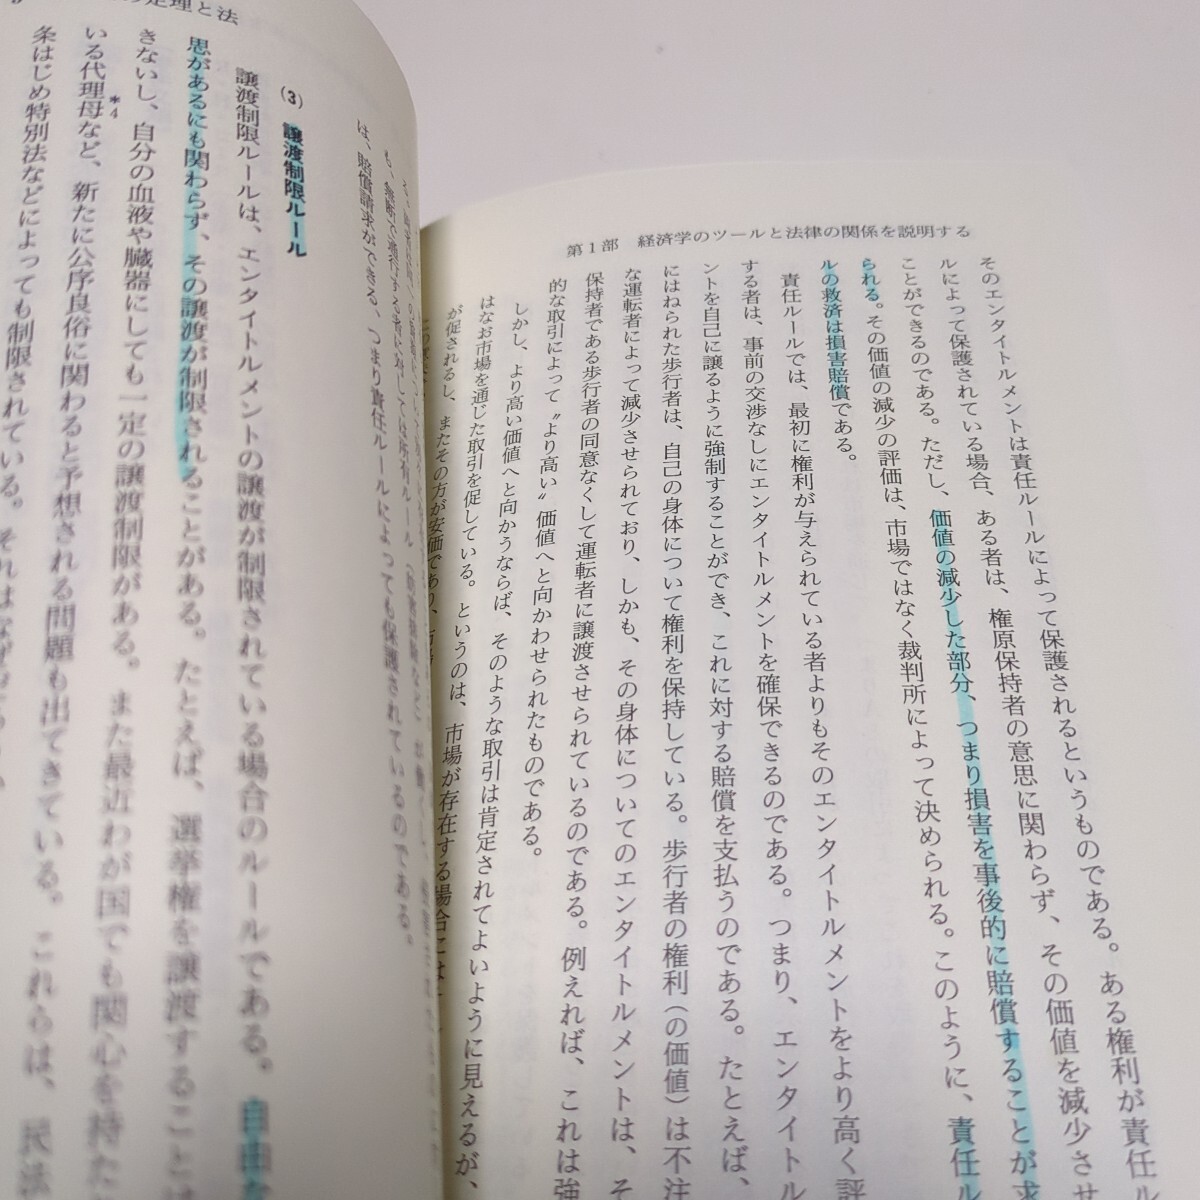 第1部　経済学のツールと法律の関係を説明する
そのエンタイトルメントは責任ルールによって保護されるというものである。ある権利が責任ル
ルによって保護されている場合、ある者は、権原保持者の意思に関わらず、その価値を減少させ
ことができるのである。ただし、価値の減少した部分、つまり損害を事後的に賠償することが求
られる。その価値の減少の評価は、市場ではなく裁判所によって決められる。このように、責任ル
ルの救済は損害賠償である。
責任ルールでは、最初に権利が与えられている者よりもそのエンタイトルメントをより高く評
する者は、事前の交渉なしにエンタイトルメントを確保できるのである。つまり、エンタイトル
ントを自己に譲るように強制することができ、これに対する賠償を支払うのである。たとえば、
にはねられた歩行者は、自己の身体について権利を保持している。歩行者の権利（の価値）は不注
な運転者によって減少させられており、しかも、その身体についてのエンタイトルメントは、そ
保持者である歩行者の同意なくして運転者に譲渡させられているのである。例えれば、これは強
的な取引によって〝より高い〟価値へと向かわせられたものである。
しかし、より高い価値へと向かうならば、そのような取引は肯定されてよいように見えるが、
はなお市場を通じた取引を促している。というのは、市場が存在する場合には
が促されるし、またその方が安価であり、
も、無断で通行する者に対しては所有ルール
は、賠償請求ができる、つまり責任ルールによっても保護されているのである。
(3)　譲渡制限ルール
譲渡制限ルールは、エンタイトルメントの譲渡が制限されている場合のルールである。自由な
思があるにも関わらず、その譲渡が制限されることがある。たとえば、選挙権を譲渡することは
きないし、自分の血液や臓器にしても一定の譲渡制限がある。また最近わが国でも関心を持た
いる代理母*4など、新たに公序良俗に関わると予想される問題も出てきている。これらは、民法
条はじめ特別法などによっても制限されている。それはなぜ
の定理と法